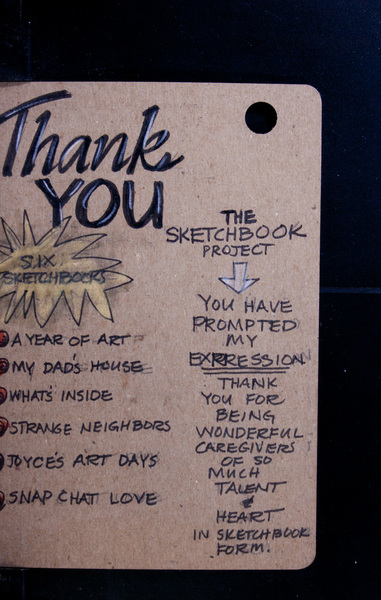 Thank
YOU
SIX
SKETCHBOOKS
A YEAR OF ART
MY DAD'S HOUSE
WHATS INSIDE
STRANGE NEIGHBORS
JOYCE'S ART DAYS
SNAP CHAT LOVE
THE
SKETCHBOOK
PROJECT
YOU HAVE
PROMPTED
MY
EXPRESSION
THANK
YOU FOR
BEING
WONDERFUL
CAREGIVERS
OF SO
MUCH
TALENT
&
HEART
IN SKETCHBOOK
FORM.